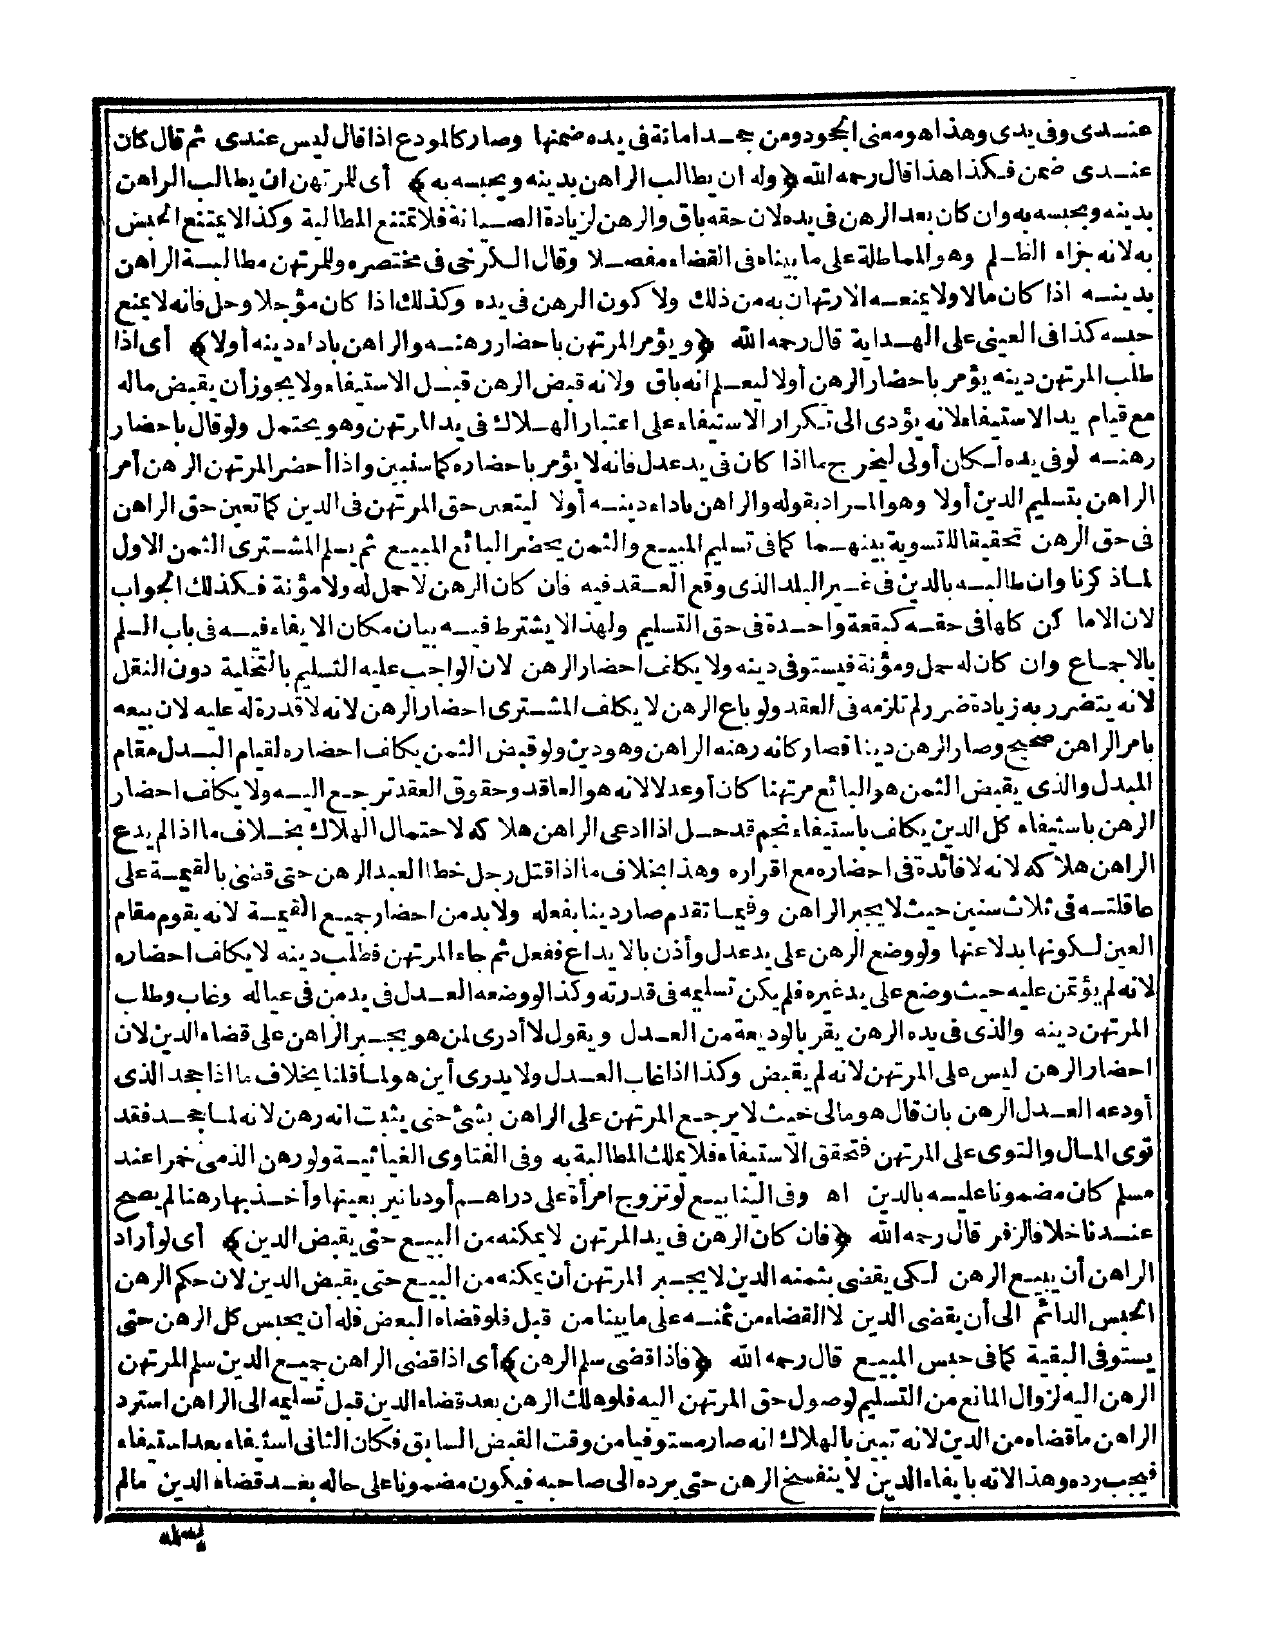 عندى وفى يدى وهذا هو معنى الجحود ومن جحد امانة فى يده ضمنها وصار كالمودع اذا قال ليس عندى ثم قال كان
عندى ضمن فكذا هذا قال رحمه الله ﴿وله ان يطالب الراهن بدينه ويحبسه به﴾ أى للمرتهن ان يطالب الراهن
بدينه ويحبسه به وان كان بعد الرهن فى يده لان حقه باق والرهن لزيادة الصيانة فلا تمتنع المطالبة وكذا لا يمتنع الحبس
به لانه جزاء الظلم وهو المماطلة على ما بيناه فى القضاء مفصلا وقال الكرخى فى مختصره وللمرتهن مطالبة الراهن
بدينه اذا كان مالا ولا يمنعه الارتهان به من ذلك ولا كون الرهن فى يده وكذلك اذا كان مؤجلا وحل فانه لا يمنع
حبسه كذا فى العينى على الهداية قال رحمه الله ﴿ويؤمر المرتهن باحضار رهنه والراهن باداء دينه أولا﴾ أى اذا
طلب المرتهن دينه يؤمر باحضار الرهن أولا ليعلم انه باق ولانه قبض الرهن قبل الاستيفاء ولا يجوز أن يقبض ماله
مع قيام يد الاستيفاء لانه يؤدى الى تكرار الاستيفاء على اعتبار الهلاك فى يد المرتهن وهو يحتمل ولو قال باحضار
رهنه لو فى يده لكان أولى ليخرج ما اذا كان فى يد عدل فانه لا يؤمر باحضاره كما سنبين واذا أحضر المرتهن الرهن أمر
الراهن بتسليم الدين أولا وهو المراد بقوله والراهن باداء دينه أولا ليتعين حق المرتهن فى الدين كما تعين حق الراهن
فى حق الرهن تحقيقا للتسوية بينهما كما فى تسليم المبيع والثمن يحضر البائع المبيع ثم يسلم المشترى الثمن الاول
لما ذكرنا وان طالبه بالدين فى غير البلد الذى وقع العقد فيه فان كان الرهن لا حمل له ولا مؤنة فكذلك الجواب
لان الاماكن كلها فى حقه كبقعة واحدة فى حق التسليم ولهذا لا يشترط فيه بيان مكان الايفاء فيه فى باب السلم
بالاجماع وان كان له حمل ومؤنة فيستوفى دينه ولا يكلف احضار الرهن لان الواجب عليه التسليم بالتخلية دون النقل
لانه يتضرر به زيادة ضرر لم تلزمه فى العقد ولو باع الرهن لا يكلف المشترى احضار الرهن لانه لا قدرة له عليه لان بيعه
بامر الراهن صحيح وصار الرهن دينا فصار كانه رهنه الراهن وهو دين ولو قبض الثمن يكلف احضاره لقيام البدل مقام
المبدل والذى يقبض الثمن هو البائع مرتهنا كان أو عدلا لانه هو العاقد وحقوق العقد ترجع اليه ولا يكلف احضار
الرهن باستيفاء كل الدين يكلف باستيفاء نجم قد حل اذا ادعى الراهن هلاكه لاحتمال الهلاك بخلاف ما اذا لم يدع
الراهن هلاكه لانه لا فائدة فى احضاره مع اقراره وهذا بخلاف ما اذا قتل رجل خطأ العبد الرهن حتى قضى بالقيمة على
عاقلته فى ثلاث سنين حيث لا يجبر الراهن وفيما تقدم صار دينا بفعله ولا بد من احضار جميع القيمة لانه يقوم مقام
العين لكونها بدلا عنها ولو وضع الرهن على يد عدل وأذن بالايداع ففعل ثم جاء المرتهن فطلب دينه لا يكلف احضاره
لانه لم يؤتمن عليه حيث وضع على يد غيره فلم يكن تسليمه فى قدرته وكذا لو وضعه العدل فى يد من فى عياله وغاب وطلب
المرتهن دينه والذى فى يده الرهن يقر بالوديعة من العدل ويقول لا أدرى لمن هو يجبر الراهن على قضاء الدين لان
احضار الرهن ليس على المرتهن لانه لم يقبض وكذا اذا غاب العدل ولا يدرى أين هو لما قلنا بخلاف ما اذا جحد الذى
أودعه العدل الرهن بان قال هو مالى حيث لا يرجع المرتهن على الراهن بشئ حتى يثبت انه رهن لانه لما جحد فقد
توى المال والتوى على المرتهن فتحقق الاستيفاء فلا يملك المطالبة به وفى الفتاوى الغياثية ولو رهن الذمى خمرا عند
مسلم كان مضمونا عليه بالدين اه وفى الينابيع لو تزوج امرأة على دراهم أو دنانير بعينها وأخذ بها رهنا لم يصح
عندنا خلافا لزفر قال رحمه الله ﴿فان كان الرهن فى يد المرتهن لا يمكنه من البيع حتى يقبض الدين﴾ أى لو أراد
الراهن أن يبيع الرهن لكى يقضى بثمنه الدين لا يجبر المرتهن أن يمكنه من البيع حتى يقبض الدين لان حكم الرهن
الحبس الدائم الى أن يقضى الدين لا القضاء من ثمنه على ما بينا من قبل فلو قضاه البعض فله أن يحبس كل الرهن حتى
يستوفى البقية كما فى حبس المبيع قال رحمه الله ﴿فاذا قضى سلم الرهن﴾ أى اذا قضى الراهن جميع الدين سلم المرتهن
الرهن اليه لزوال المانع من التسليم لوصول حق المرتهن اليه فلو هلك الرهن بعد قضاء الدين قبل تسليمه الى الراهن استرد
الراهن ما قضاه من الدين لانه تبين بالهلاك انه صار مستوفيا من وقت القبض السابق فكان الثانى استيفاء بعد استيفاء
فيجب رده وهذا لانه بايفاء الدين لا ينفسخ الرهن حتى يرده الى صاحبه فيكون مضمونا على حاله بعد قضاء الدين مالم
يسلمه